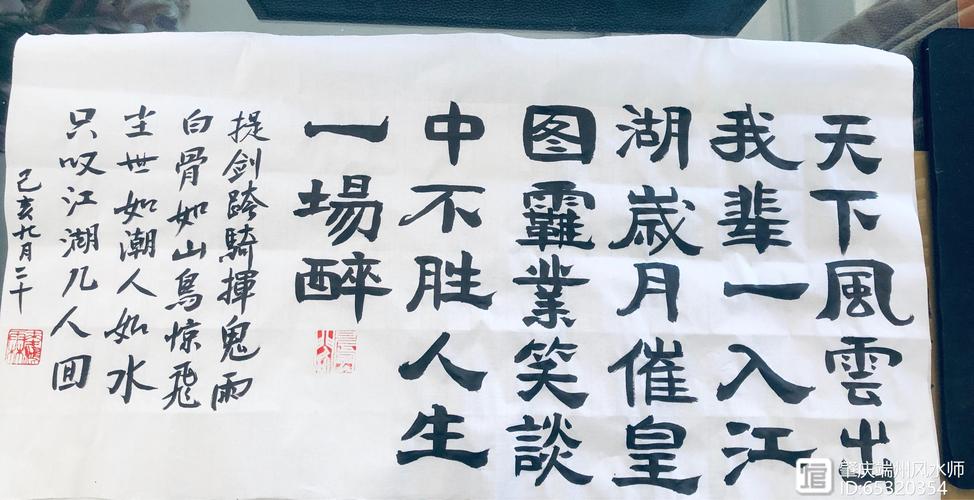 天下風雲出
我輩一入江
湖歲月催皇
图霸業笑談
中不胜人生
一場醉
提剑跨騎揮鬼雨
白骨如山鳥惊飛
尘世如潮人如水
只叹江湖几人回
己亥九月二十
肇庆端州风水师
ID:65320354